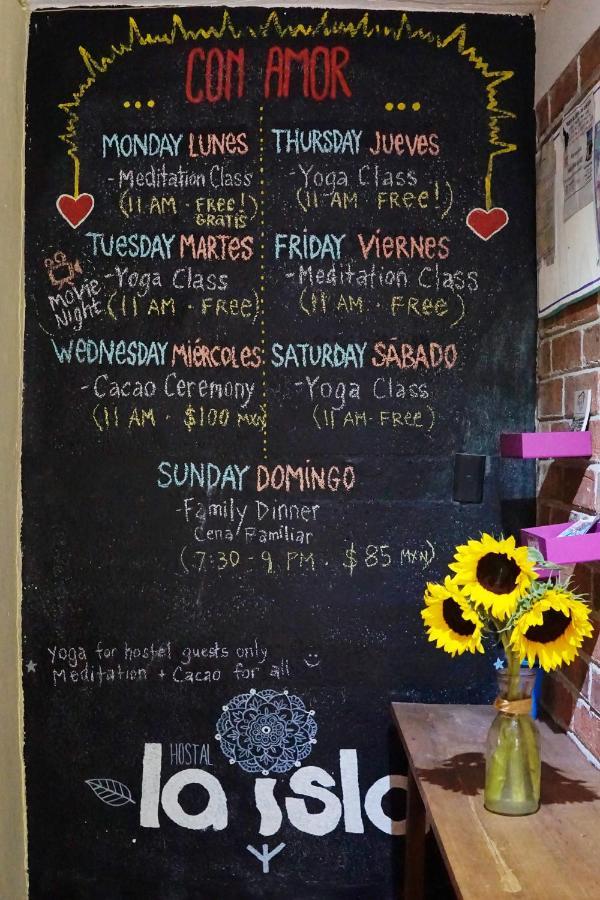 CON AMOR
MONDAY LUNES
- Meditation Class
(11 AM · FREE!)
GRATIS
TUESDAY MARTES
- Yoga Class
(11 AM · FREE)
Movie
Night
WEDNESDAY MIÉRCOLES
- Cacao Ceremony
(11 AM · $100 MXN)
THURSDAY JUEVES
- Yoga Class
(11 AM FREE!)
FRIDAY VIERNES
- Meditation Class
(11 AM · FREE)
SATURDAY SÁBADO
- Yoga Class
(11 AM · FREE)
SUNDAY DOMINGO
- Family Dinner
Cena Familiar
(7:30 - 9 PM · $85 MXN)
Yoga for hostel guests only
Meditation + Cacao for all
HOSTAL
la isla